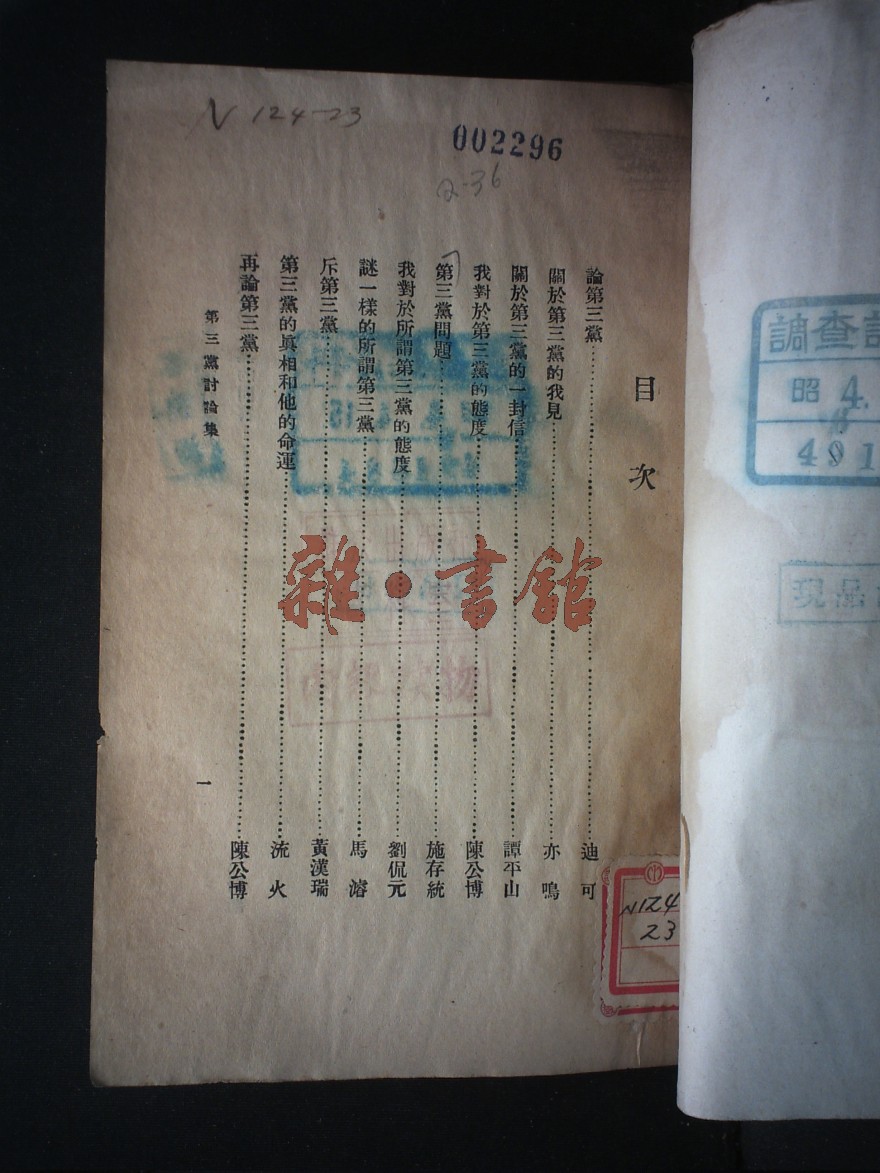 N 124-23
002296
2-36
目次
論第三黨……迪可
關於第三黨的我見……亦鳴
關於第三黨的一封信……譚平山
我對於第三黨的態度……陳公博
第三黨問題……施存統
我對於所謂第三黨的態度……劉侃元
謎一樣的所謂第三黨……馬濬
斥第三黨……黃漢瑞
第三黨的眞相和他的命運……流火
再論第三黨……陳公博
第三黨討論集
一
雜·書館
N124
23
調查
昭4.
491
現品